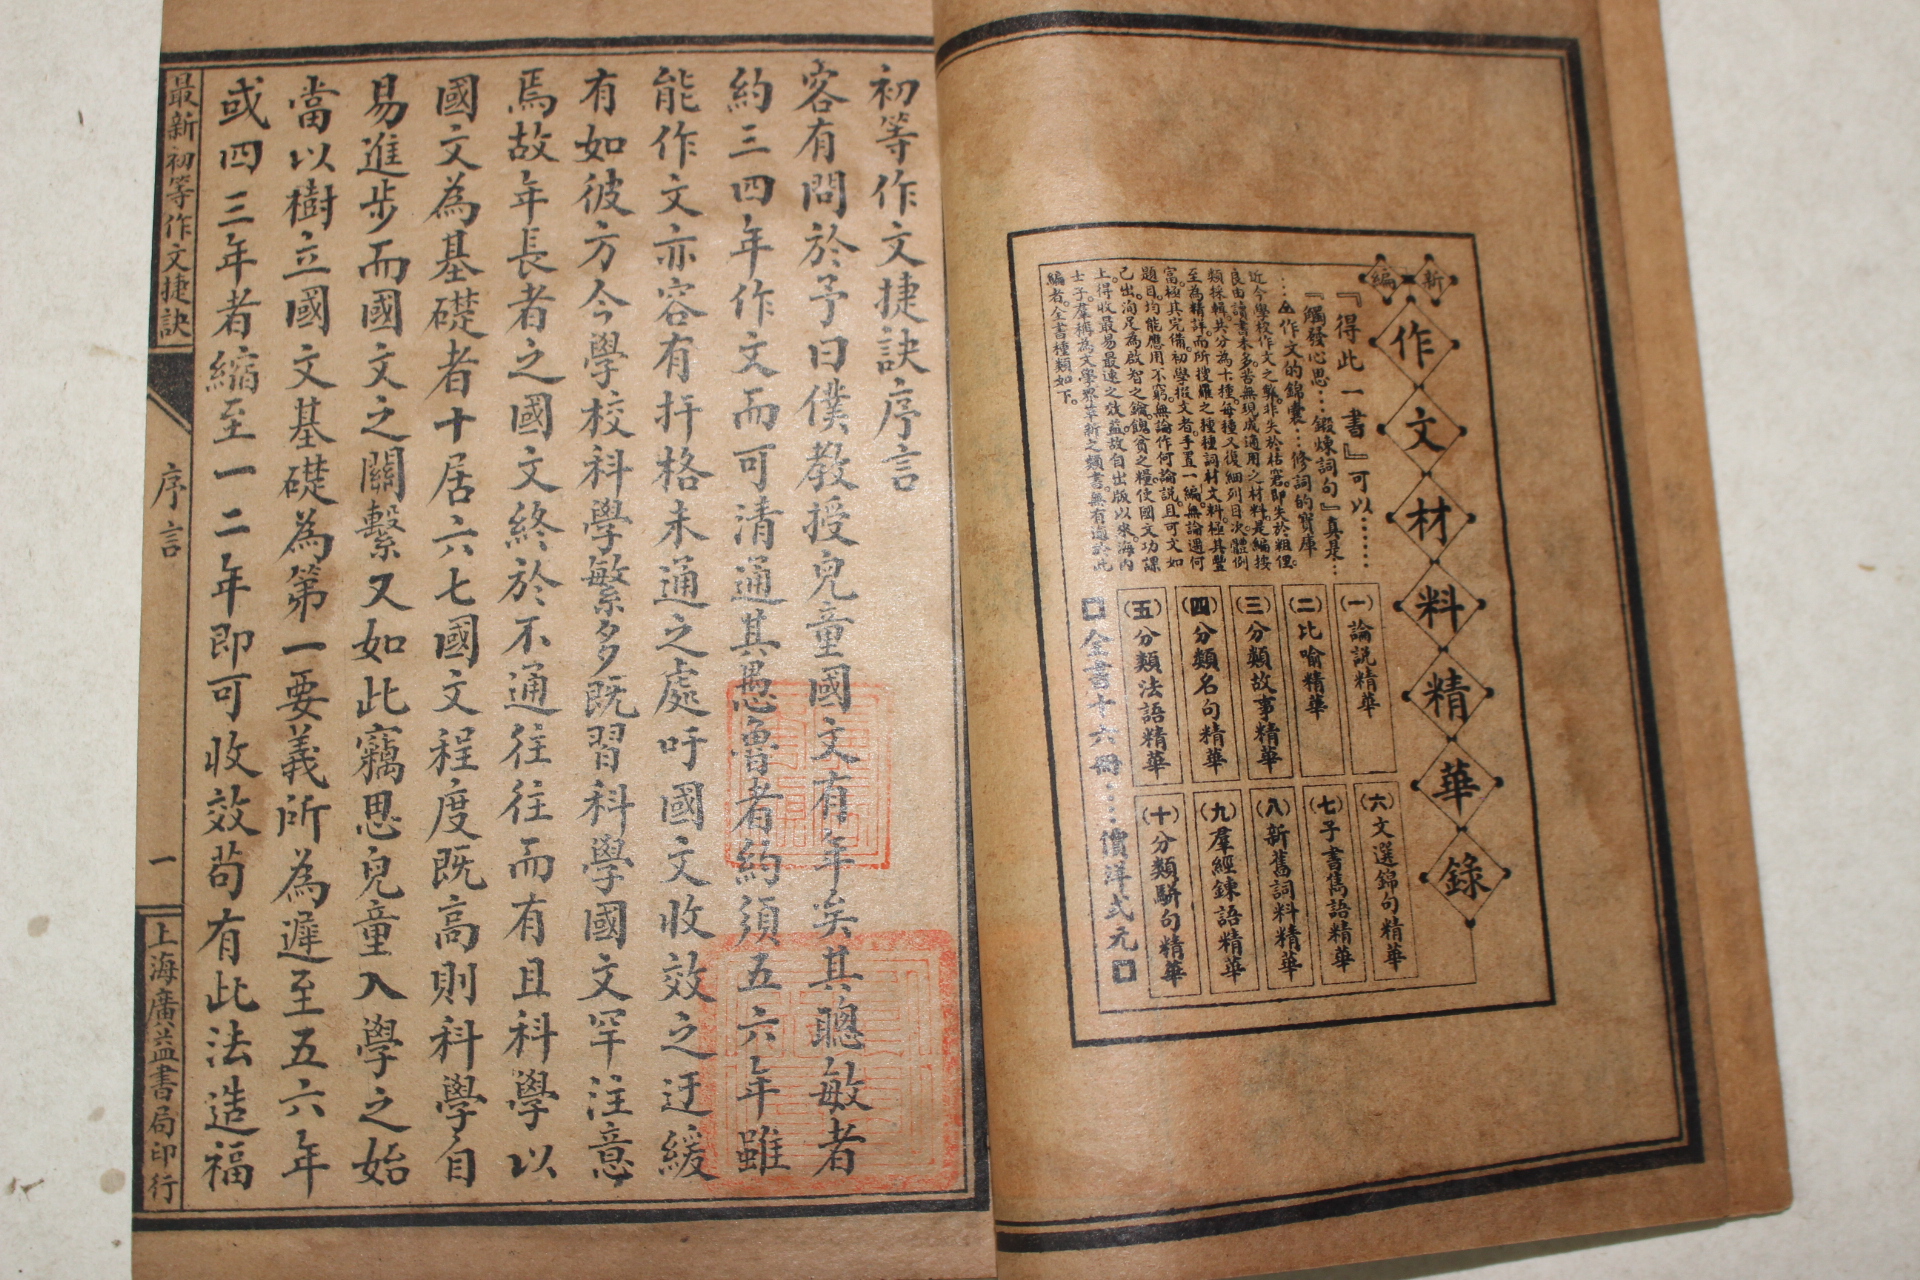 新編
作文材料精華錄
『得此一書』可以……
『觸發心思…鍛煉詞句』真是…
…作文的錦囊…修詞的寶庫
近今學校作文之弊非失於枯窘即失於粗俚。
良由讀書未多。苦無現成適用之材料。是編按
類採輯。共分為十種。每種又復細列目次。體例
至為精詳。而所搜羅之種種詞材文料。極其豐
富。極其完備。初學掇文者。手置一編。無論遇何
題目。均能應用不窮。無論作何論說。且可文如
己出。洵足為啟智之鑰。餽貧之糧。使國文功課
上。得收最易最速之效益。故自出版以來。海內
士子。羣稱為文學界革新之類書。無有過於此
編者。全書種類如下。
(一)論說精華
(二)比喻精華
(三)分類故事精華
(四)分類名句精華
(五)分類法語精華
(六)文選錦句精華
(七)子書雋語精華
(八)新舊詞料精華
(九)羣經鍊語精華
(十)分類駢句精華
全書十六冊……價洋式元
初等作文捷訣序言
客有問於予曰僕教授兒童國文有年矣其聰敏者
約三四年作文而可清通其愚魯者約須五六年雖
能作文亦容有扞格未通之處吁國文收效之迂緩
有如彼方今學校科學繁多既習科學國文罕注意
焉故年長者之國文終於不通往往而有且科學以
國文為基礎者十居六七國文程度既高則科學自
易進步而國文之關繫又如此竊思兒童入學之始
當以樹立國文基礎為第一要義所為遲至五六年
或四三年者縮至一二年即可收效苟有此法造福
最新初等作文捷訣
序言
一
上海廣益書局印行